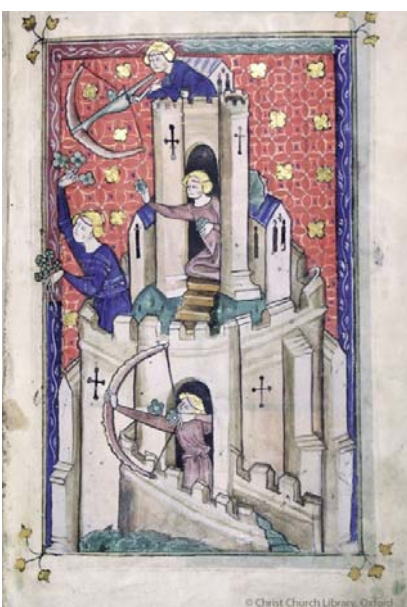 © Christ Church Library, Oxford